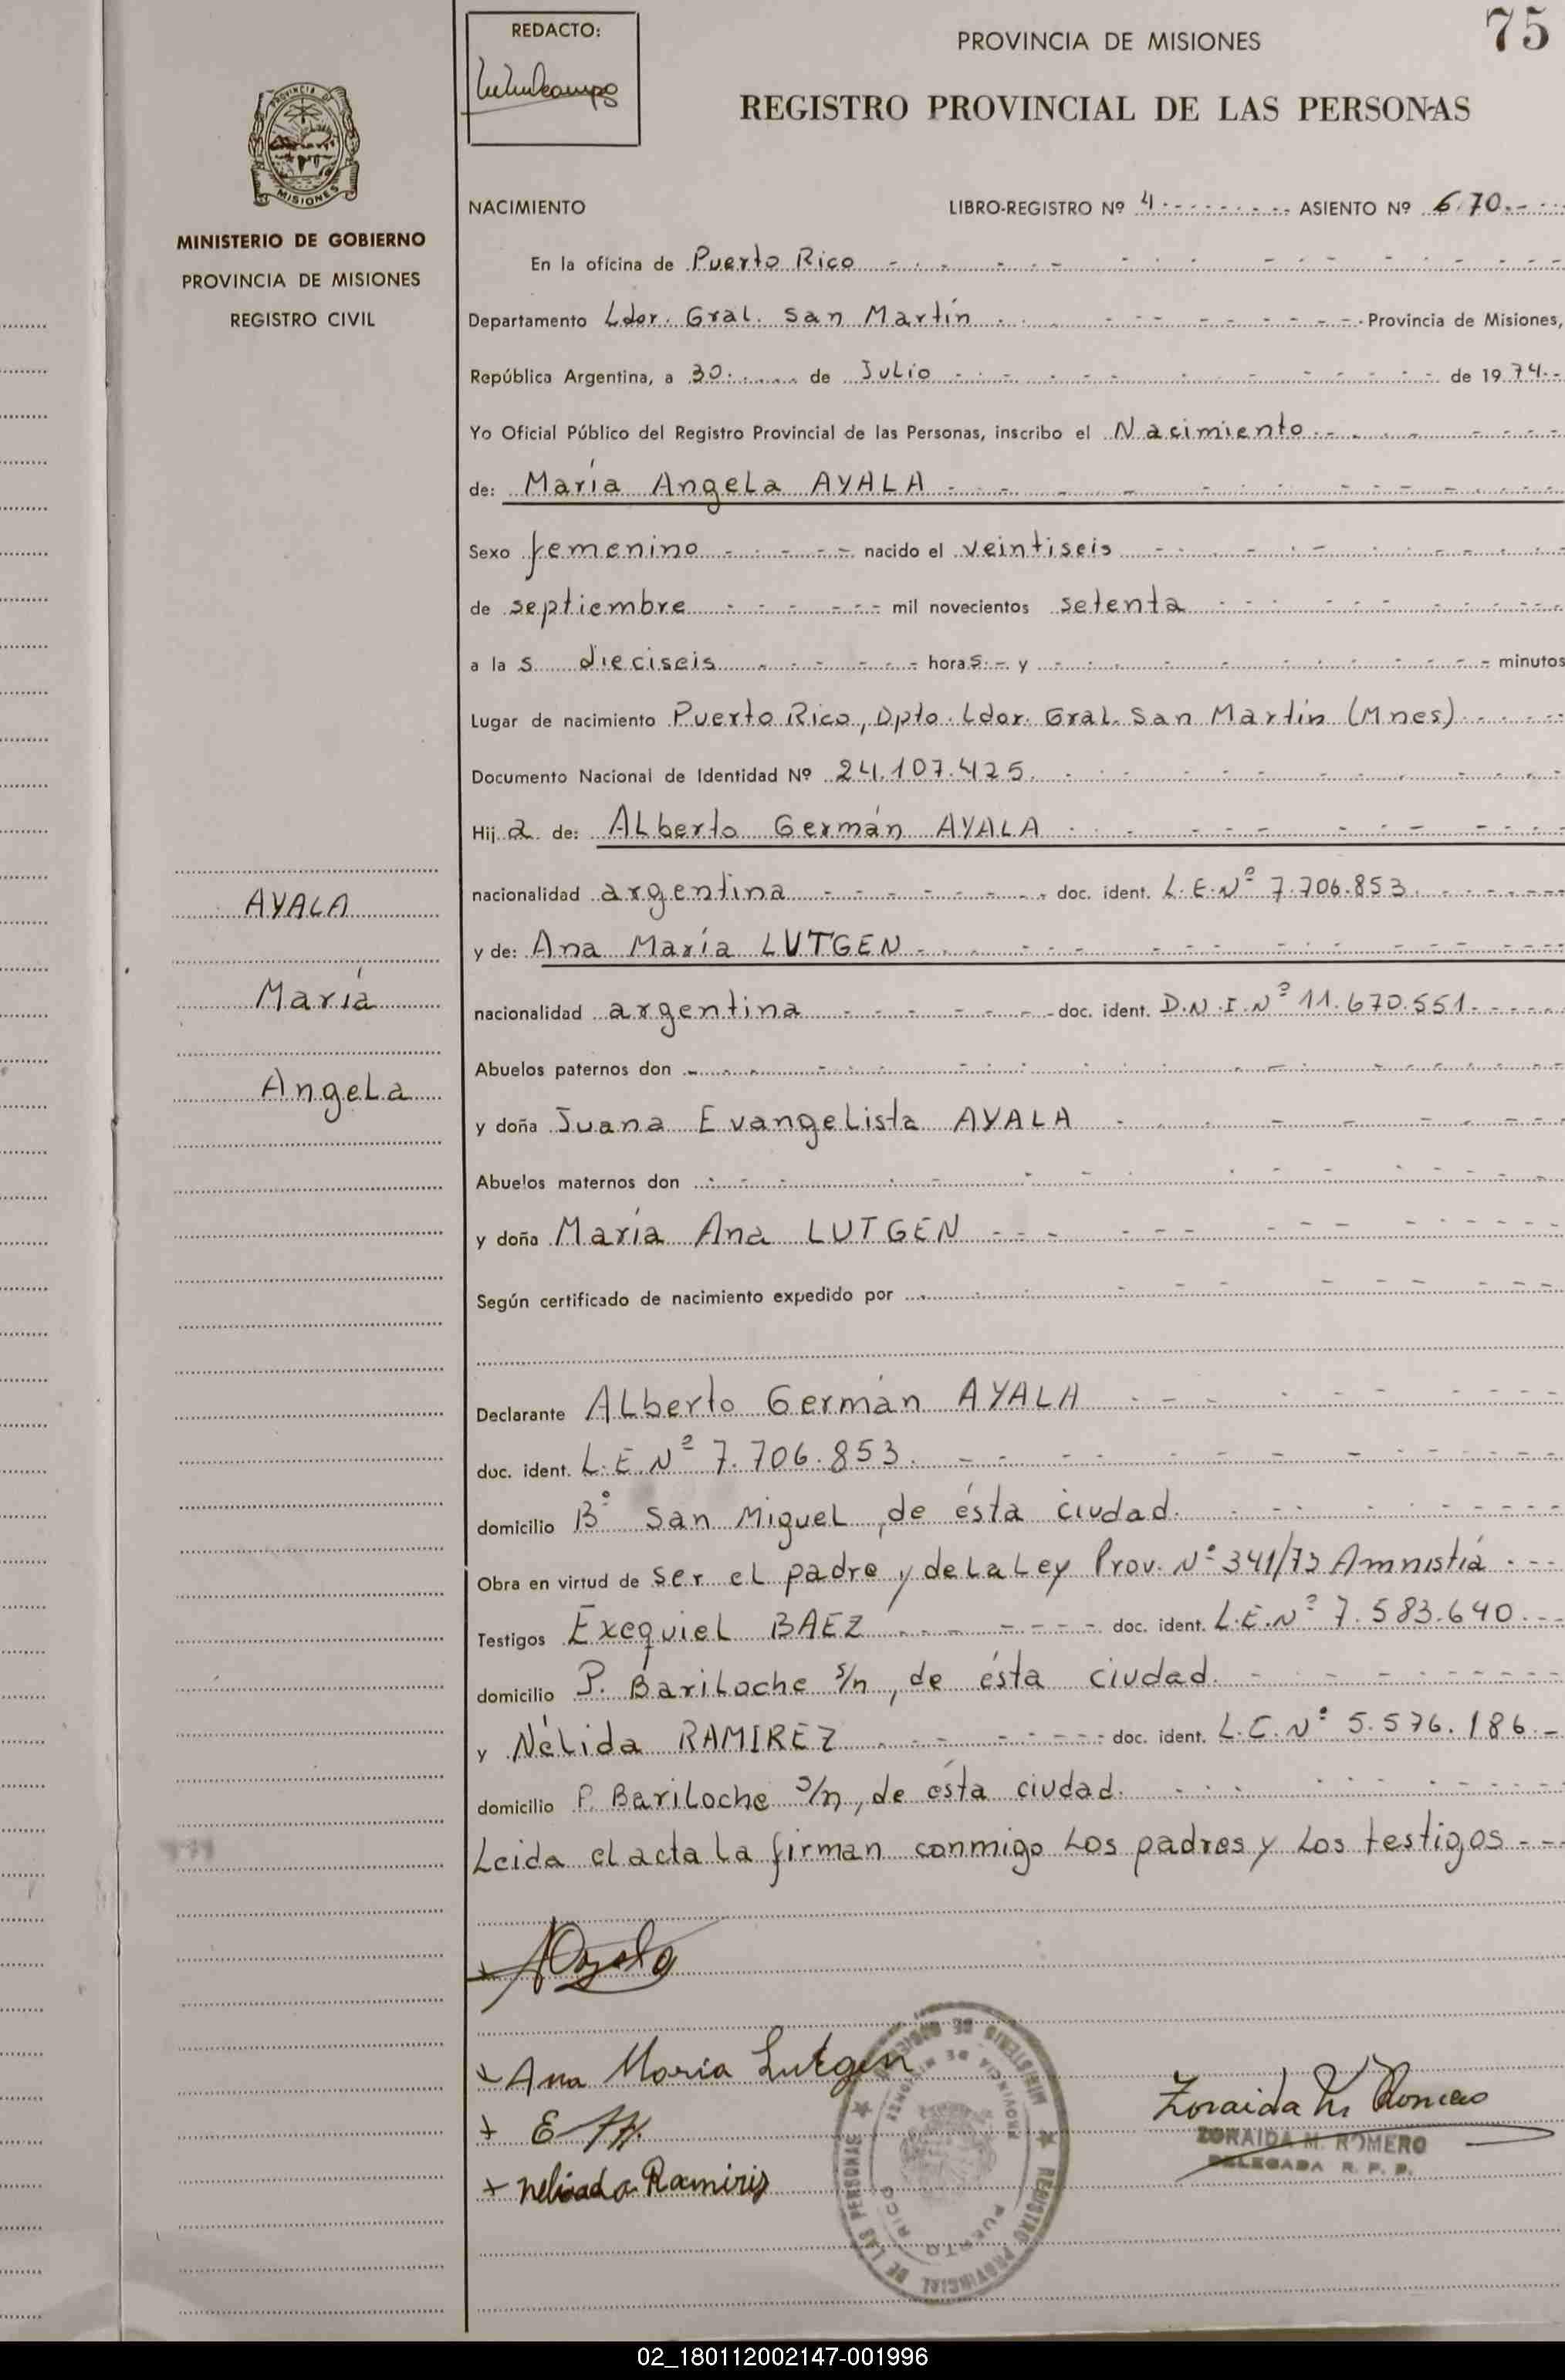 75
REDACTO:
PROVINCIA DE MISIONES
REGISTRO PROVINCIAL DE LAS PERSONAS
MISIONES
MINISTERIO DE GOBIERNO
PROVINCIA DE MISIONES
REGISTRO CIVIL
NACIMIENTO LIBRO-REGISTRO Nº 4 ASIENTO Nº 670
En la oficina de Puerto Rico
Departamento Ldor. Gral. San Martín Provincia de Misiones,
República Argentina, a 30 de Julio de 1974
Yo Oficial Público del Registro Provincial de las Personas, inscribo el Nacimiento
de: María Angela AYALA
Sexo femenino nacido el veintiseis
de septiembre mil novecientos setenta
a la s dieciseis horas y minutos
Lugar de nacimiento Puerto Rico, Dpto. Ldor. Gral. San Martín (Mnes)
Documento Nacional de Identidad Nº 24.107.425
Hija de: ALberto Germán AYALA
nacionalidad argentina doc. ident. L.E.Nº 7.706.853
y de: Ana María LUTGEN
nacionalidad argentina doc. ident. D.N.I.Nº 11.670.551
Abuelos paternos don
y doña Juana Evangelista AYALA
Abuelos maternos don
y doña María Ana LUTGEN
Según certificado de nacimiento expedido por
AYALA
María
Angela
Declarante ALberto Germán AYALA
doc. ident. L.E.Nº 7.706.853.
domicilio Bº San Miguel, de ésta ciudad.
Obra en virtud de ser el padre y de La Ley Prov. Nº 341/73 Amnistía
Testigos Exequiel BAEZ doc. ident. L.E.Nº 7.583.640
domicilio P. Bariloche s/n, de ésta ciudad.
y Nélida RAMIREZ doc. ident. L.C.Nº 5.576.186
domicilio P. Bariloche s/n, de ésta ciudad.
Leida el acta la firman conmigo los padres y los testigos
Ana María Lutgen
Zoraida M. Romero
ZORAIDA M. ROMERO
DELEGADA R. P. P.
MINISTERIO DE GOBIERNO
REGISTRO PROVINCIAL DE LAS PERSONAS
PROVINCIA DE MISIONES
PUERTO RICO
02_180112002147-001996